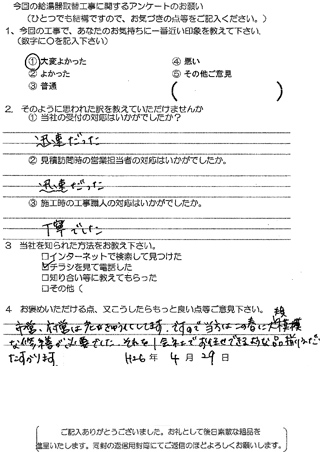 今回の給湯器取替工事に関するアンケートのお願い
(ひとつでも結構ですので、お気づきの点等をご記入ください。)
1、今回の工事で、あなたのお気持ちに一番近い印象を教えて下さい。
(数字に○を記入下さい)
①大変よかった ④悪い
②よかった ⑤その他ご意見
③普通 ( )
2．そのように思われた訳を教えていただけませんか
① 当社の受付の対応はいかがでしたか?
迅速だった
② 見積訪問時の営業担当者の対応はいかがでしたか。
迅速だった
③ 施工時の工事職人の対応はいかがでしたか。
丁寧でした
3 当社を知られた方法をお教え下さい。
□インターネットで検索して見つけた
☑チラシを見て電話した
□知り合い等に教えてもらった
□その他(
4 お褒めいただける点、又こうしたらもっと良い点等ご意見下さい。
大規模
な修繕が必要でした。それを1会社でお任せできる
たすかります。 H26年 4月 29日
ご記入ありがとうございました。お礼として後日素敵な粗品を
進呈いたします。同封の返信用封筒にてご返信のほどよろしくお願いします。